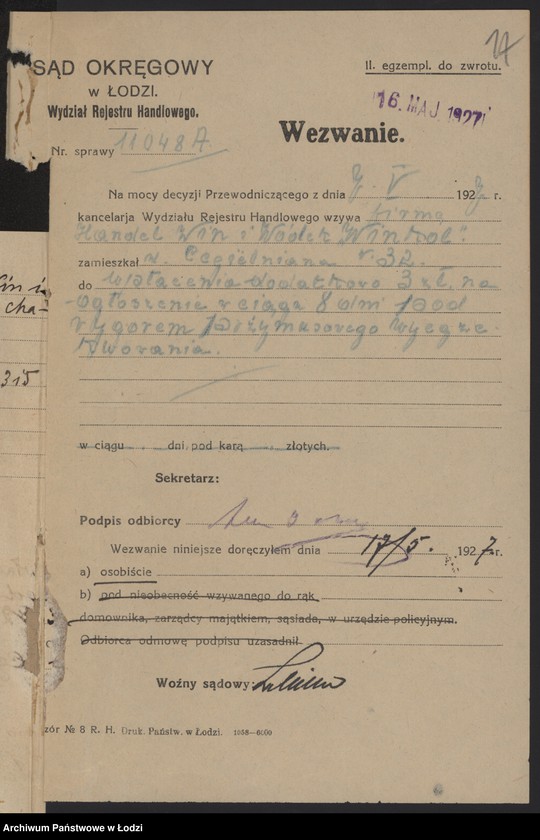 14
SĄD OKRĘGOWY
w ŁODZI.
Wydział Rejestru Handlowego.
II. egzempl. do zwrotu.
16. MAJ 1927
Wezwanie.
Nr. sprawy 11048 A
Na mocy decyzji Przewodniczącego z dnia 7. V 1927 r.
kancelarja Wydziału Rejestru Handlowego wzywa firmę
Handel Win i Wódek "Winkol"
zamieszkał u. Cegielniana N. 32.
do wpłacenia dodatkowo 3 zł. na
ogłoszenie w ciągu 8 dni pod
rygorem przymusowego wyegze
kwowania.
w ciągu dni pod karą złotych.
Sekretarz:
Podpis odbiorcy
Wezwanie niniejsze doręczyłem dnia 17/5. 1927 r.
a) osobiście
b) pod nieobecność wzywanego do rąk
domownika, zarządcy majątkiem, sąsiada, w urzędzie policyjnym.
Odbiorca odmowę podpisu uzasadnił
Woźny sądowy:
zór № 8 R. H. Druk. Państw. w Łodzi. 1058—6000
in i
cha-
315
Archiwum Państwowe w Łodzi